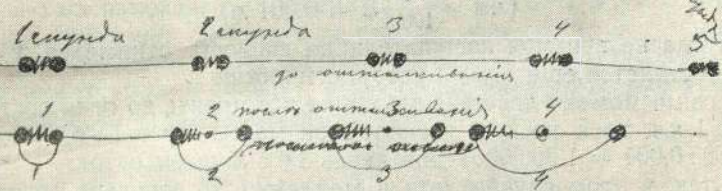 1 секунда 2 секунда 3 4 5
до отталкиванія
1 2 после отталкиванія 3 4
1 2 3 4